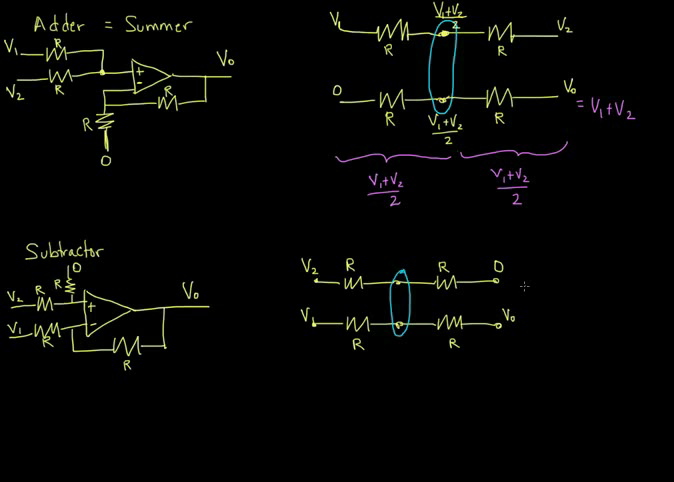 Adder = Summer
V₁
R
V₂
R
+
-
V₀
R
R
0
V₁
R
V₁+V₂/2
R
V₂
0
R
V₁+V₂/2
R
V₀
= V₁+V₂
V₁+V₂/2
V₁+V₂/2
Subtractor
0
R
V₂
R
+
V₁
R
-
V₀
R
V₂
R
R
0
V₁
R
R
V₀